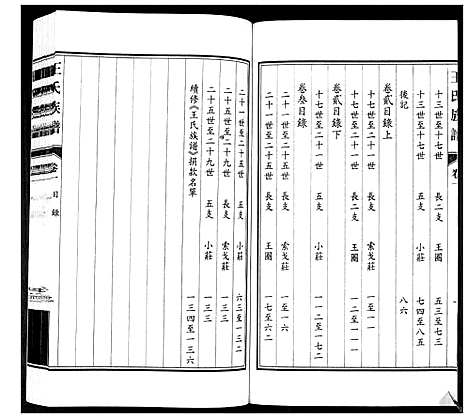 王氏族譜 卷一
十三世至十七世 長二支 王團 五三至七三
十三世至十七世 五支 小莊 七四至八五
後記 八六
卷貳目錄上
十七世至二十一世 長支 索戈莊 一至一一
十七世至二十一世 長二支 王團 一至一一一
卷貳目錄下
十七世至二十一世 五支 小莊 一一二至一七二
卷叁目錄
二十一世至二十五世 長支 索戈莊 一至一六
二十一世至二十五世 長二支 王團 一七至六二
二十一世至二十五世 五支 小莊 六三至一三二
二十五世至二十九世 長支 索戈莊 一三三
二十五世至二十九世 五支 小莊 一三三
續修《王氏族譜》捐款名單 一三四至一三六
王氏族譜
卷一
目錄